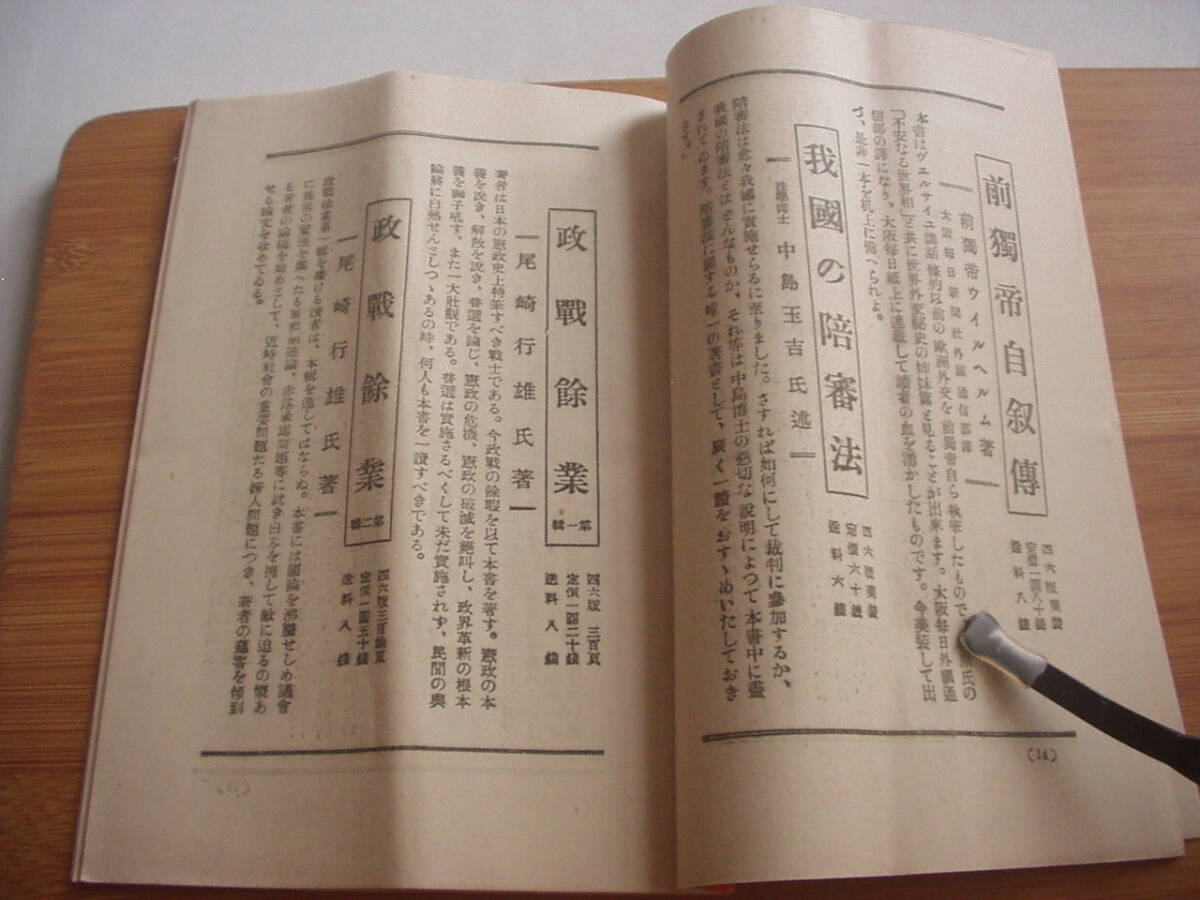 前獨帝自叙傳
前獨帝ウイルヘルム著
大阪每日新聞社外國通信部譯
四六版美裝
定價一圓八十錢
送料八錢
本書はヴエルサイユ講話條約以前の歐洲外交を前獨帝自ら執筆したもので
氏の
「不安なる世界相」と共に世界外交秘史の姉妹篇と見ることが出來ます。大阪每日外國通
信部の譯になり、大阪每日紙上に連載して讀者の血を湧かしたものです。今美裝して出
づ、是非一本を机上に備へられよ。
我國の陪審法
法學博士 中島玉吉氏述
四六版美裝
定價六十錢
送料六錢
陪審法は愈々我國に實施せらるに至りました。さすれば如何にして裁判に參加するか、
我國の陪審法とはどんなものか、それ等は中島博士の懇切な說明によつて本書中に盡
されてゐます。陪審法に關する唯一の著書として、廣く一讀をおすゝめいたしておき
ます。
(14)
政戰餘業 第一輯
尾崎行雄氏著
四六版 三百頁
定價一圓二十錢
送料八錢
著者は日本の憲政史上特筆すべき戰士である。今政戰の餘暇を以て本書を著す。憲政の本
義を說き、解散を說き、普選を論じ、憲政の危機、憲政の破滅を絕叫し、政界革新の根本
義を獅子吼す、また一大壯觀である。普選は實施さるべくして未だ實施されず、民間の輿
論將に白熱せんとしつゝあるの時、何人も本書を一讀すべきである。
政戰餘業 第二輯
尾崎行雄氏著
四六版三百餘頁
定價一圓五十錢
送料八錢
政戰餘業第一輯を繙ける讀者は、本輯を逸してはならぬ。本書には國論を沸騰せしめ議會
に
る著者の論稿を始めとして、近時社會の重要問題たる婦人問題につき、著者の蘊蓄を傾到
せる論文を收めてゐる。